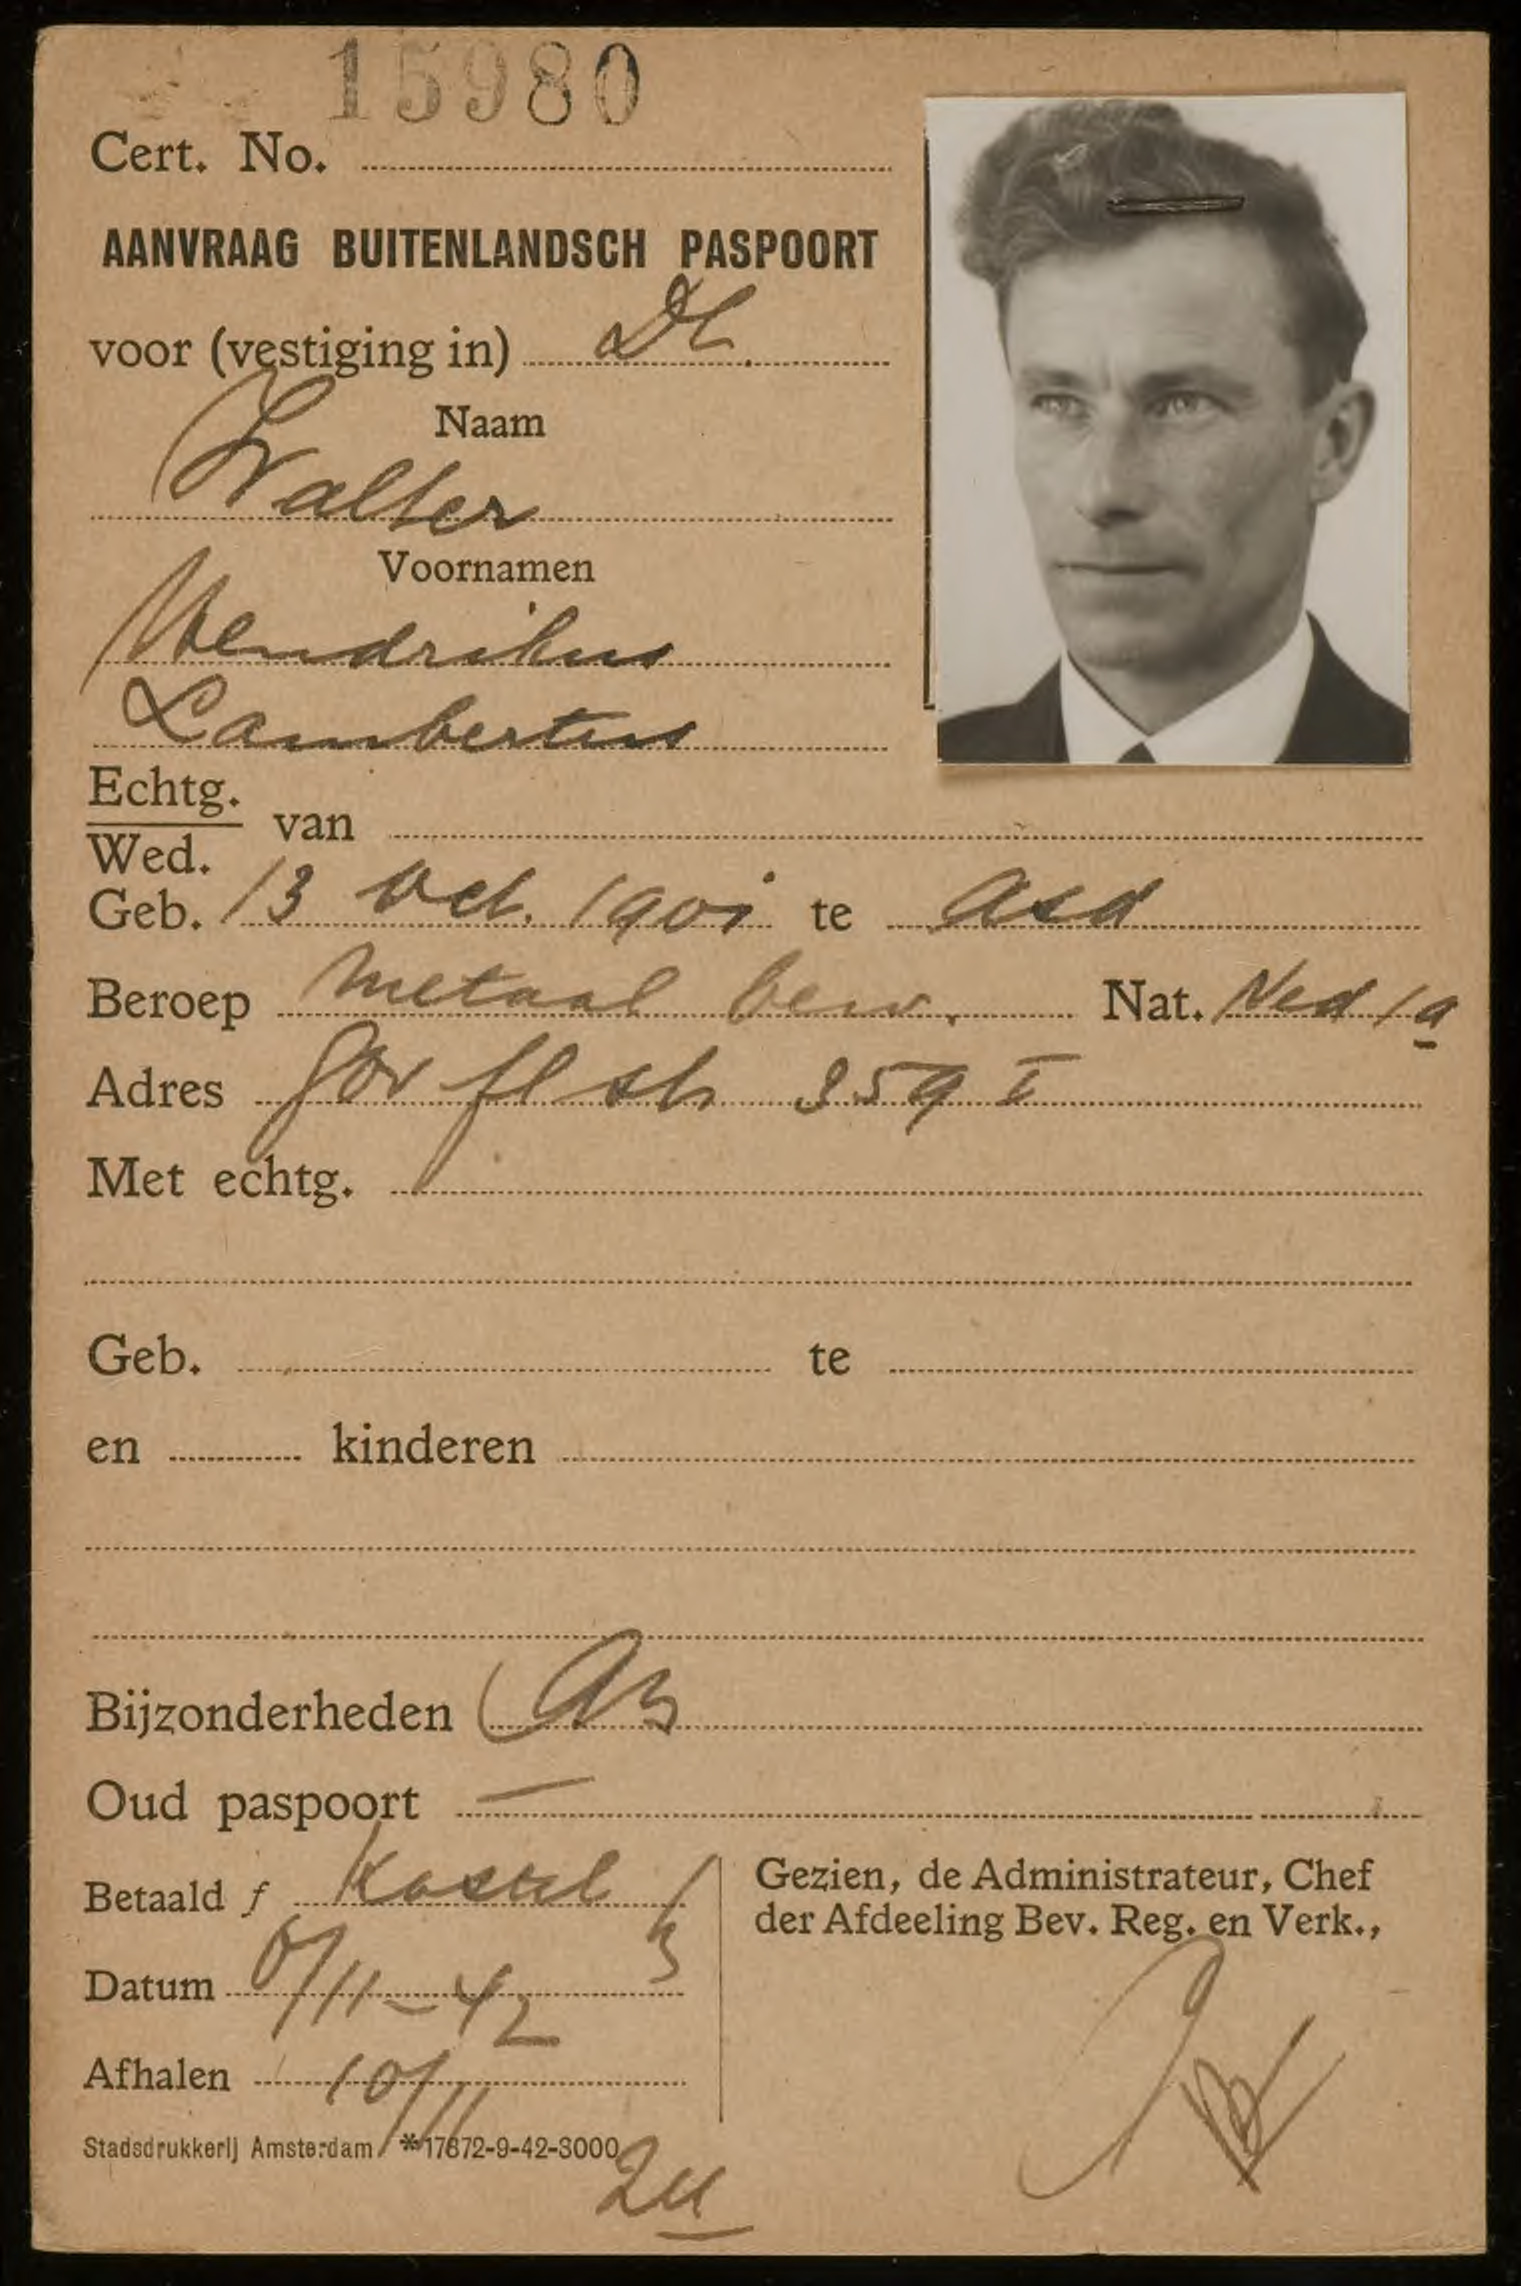 15980
Cert. No.
AANVRAAG BUITENLANDSCH PASPOORT
voor (vestiging in) Dl.
Naam
Walter
Voornamen
Hendrikus
Lambertus
Echtg.
Wed. van
Geb. 13 Oct. 1901 te Asd
Beroep metaal bew. Nat. Ned/a
Adres
Met echtg.
Geb. te
en kinderen
Bijzonderheden
Oud paspoort —
Betaald f
Datum 6/11-42
Afhalen 10/11
2u
Gezien, de Administrateur, Chef
der Afdeeling Bev. Reg. en Verk.,
Stadsdrukkerij Amsterdam *17672-9-42-3000